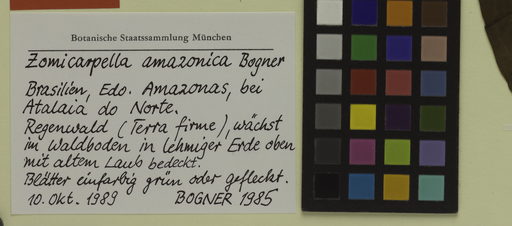 Botanische Staatssammlung München
Zomicarpella amazonica Bogner
Brasilien, Edo. Amazonas, bei
Atalaia do Norte.
Regenwald (Terra firme), wächst
im Waldboden in lehmiger Erde oben
mit altem Laub bedeckt.
Blätter einfarbig grün oder gefleckt.
10. Okt. 1989 BOGNER 1985